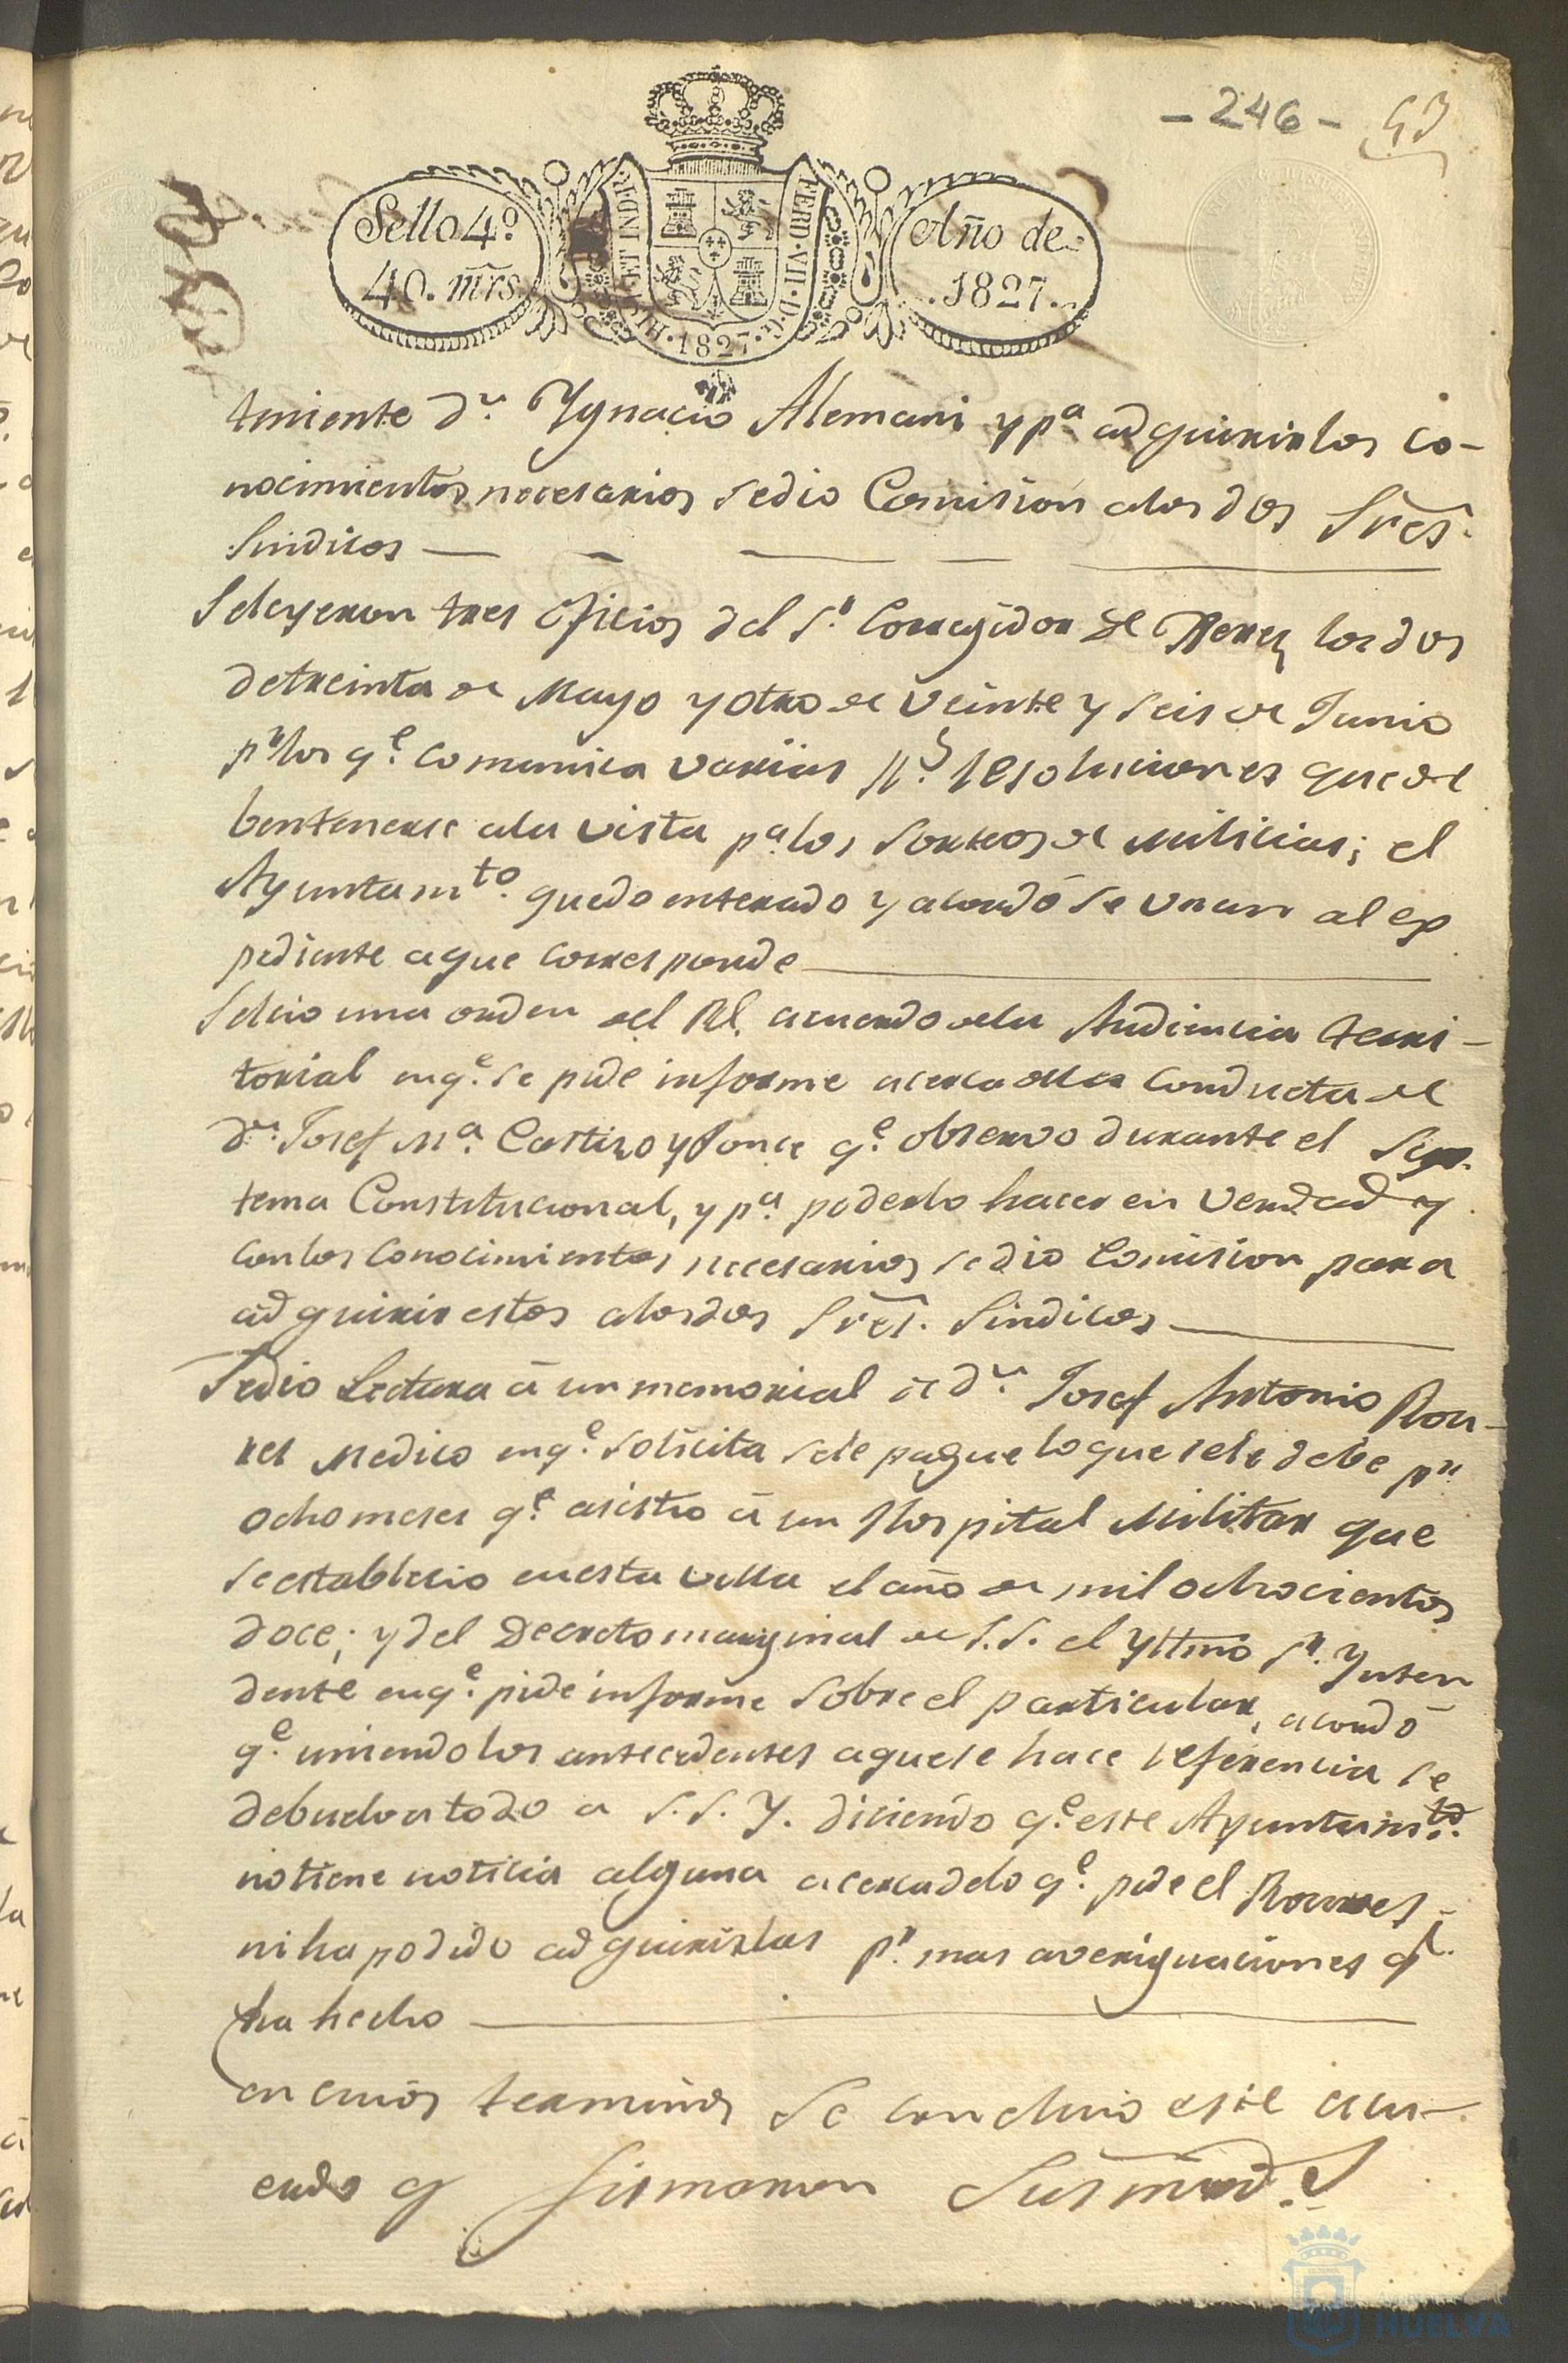 - 246 - 53
Sello 4º
40. mrs
HISP. ET IND. R. FERD. VII. D. G. 1827.
Año de
1827.
teniente dn. Ygnacio Alemani y pa. adquirir los co-
nocimientos necesarios se dio Comision a los dos Sres.
Sindicos
Se leyeron tres oficios del Sr. Corregidor de Xerez los dos
de treinta de Mayo y otro de veinte y seis de Junio
pr. los qe. comunica varias Rs. resoluciones que de
ben tenerse a la vista pa. los sorteos de Milicias; el
Ayuntamto. quedo enterado y acordó se unan al ex
pediente a que corresponde
Se leio una orden del Rl. acuerdo de la Audiencia terri-
torial en qe. se pide informe acerca de la conducta de
dn. Josef Ma. Castizo y Ponce qe. observo durante el Sys-
tema Constitucional, y pa. poderlo hacer en verdad y
con los conocimientos necesarios se dio Comision para
adquirir estos a los dos Sres. Sindicos
Se dio Lectura á un memorial de dn. Josef Antonio Rou-
res Medico en qe. solicita se le pague lo que se le debe pr.
ocho meses qe. asistio á un Hospital Militar que
se establecio en esta villa el año de mil ochocientos
doce; y del Decreto marginal de S.S. el Yltmo Sr. Ynten
dente en qe. pide informe sobre el particular, acordó
qe. uniendo los antecedentes a que se hace referencia se
debuelva todo a S.S.Y. diciendo qe. este Ayuntamto.
no tiene noticia alguna acerca de lo qe. pide el Roures,
ni ha podido adquirirlas pr. mas averiguaciones qe.
ha hecho
en cuios terminos se concluio este acu-
erdo q firmaron Sus mrds.
HUELVA